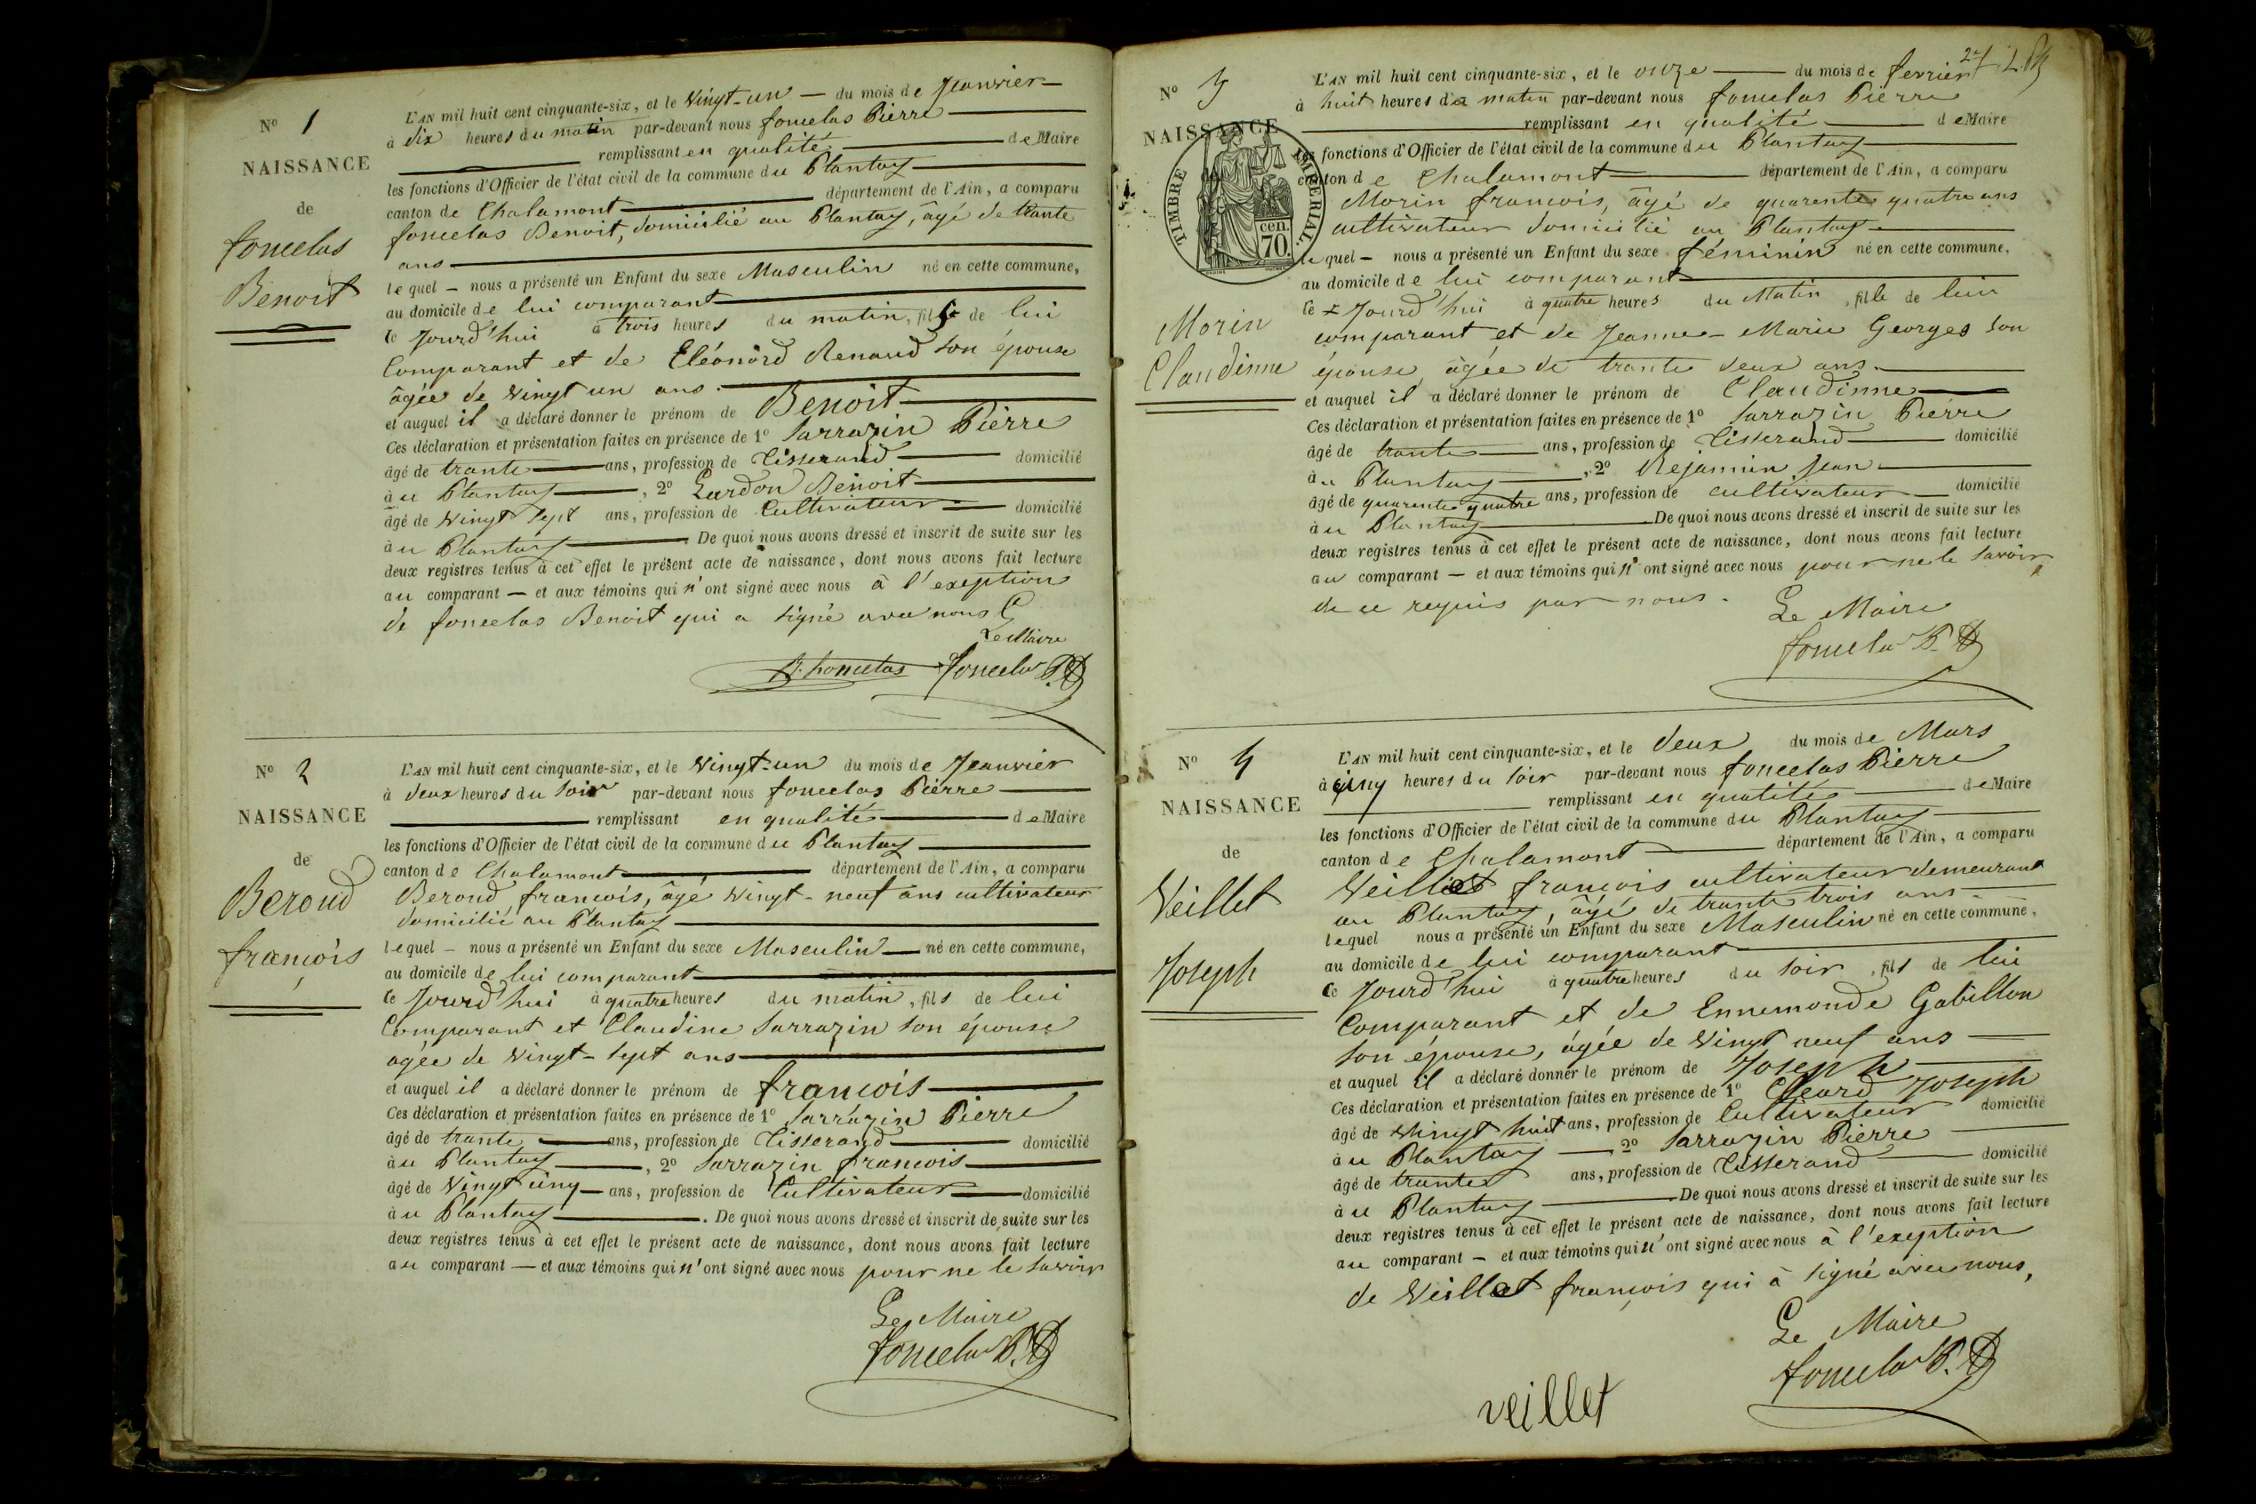 N° 1
NAISSANCE
de
foncelas
Benoit
L'AN mil huit cent cinquante-six, et le Vingt-un du mois de Jeanvier
à dix heures du matin par-devant nous foncelas Pierre
remplissant en qualité de Maire
les fonctions d'Officier de l'état civil de la commune du Plantay
canton de Chalamont département de l'Ain, a comparu
foncelas Benoit, domicilié au Plantay, âgé de trante
ans
lequel – nous a présenté un Enfant du sexe Masculin né en cette commune,
au domicile de lui comparant
ce Jourd'hui à trois heures du matin, fils de lui
Comparant et de Eléonord Renaud son épouse
âgée de vingt un ans.
et auquel il a déclaré donner le prénom de Benoit
Ces déclaration et présentation faites en présence de 1° Sarrazin Pierre
âgé de trante ans, profession de Tisserand domicilié
au Plantay, 2° Gardon Benoit
âgé de vingt sept ans, profession de Cultivateur domicilié
au Plantay. De quoi nous avons dressé et inscrit de suite sur les
deux registres tenus à cet effet le présent acte de naissance, dont nous avons fait lecture
au comparant – et aux témoins qui n'ont signé avec nous à l'exeption
de foncelas Benoit qui a signé avec nous
Le Maire
B. foncelas foncelas P.
N° 2
NAISSANCE
de
Beroud
françois
L'AN mil huit cent cinquante-six, et le Vingt-un du mois de Jeanvier
à deux heures du soir par-devant nous foncelas Pierre
remplissant en qualité de Maire
les fonctions d'Officier de l'état civil de la commune du Plantay
canton de Chalamont département de l'Ain, a comparu
Beroud françois, âgé vingt-neuf ans cultivateur
domicilié au Plantay
lequel – nous a présenté un Enfant du sexe Masculin né en cette commune,
au domicile de lui comparant
ce Jourd'hui à quatre heures du matin, fils de lui
Comparant et Claudine Sarrazin son épouse
agée de vingt-sept ans
et auquel il a déclaré donner le prénom de françois
Ces déclaration et présentation faites en présence de 1° Sarrazin Pierre
âgé de trante ans, profession de Tisserand domicilié
au Plantay, 2° Sarrazin francois
âgé de vingt cinq ans, profession de Cultivateur domicilié
au Plantay. De quoi nous avons dressé et inscrit de suite sur les
deux registres tenus à cet effet le présent acte de naissance, dont nous avons fait lecture
au comparant – et aux témoins qui n'ont signé avec nous pour ne le savoir
Le Maire
foncelas P.
27
N° 3
NAISSANCE
TIMBRE IMPERIAL.
70 cen.
Morin
Claudinne
L'AN mil huit cent cinquante-six, et le onze du mois de fevrier
à huit heures du matin par-devant nous foncelas Pierre
remplissant en qualité de Maire
les fonctions d'Officier de l'état civil de la commune du Plantay
canton de Chalamont département de l'Ain, a comparu
Morin francois, âgé de quarente quatre ans
cultivateur domicilié au Plantay
lequel – nous a présenté un Enfant du sexe féminin né en cette commune,
au domicile de lui comparant
ce Jourd'hui à quatre heures du Matin, fille de lui
comparant et de Jeanne-Marie Georges son
épouse, âgée de trante deux ans.
et auquel il a déclaré donner le prénom de Claudinne
Ces déclaration et présentation faites en présence de 1° Sarrazin Pierre
âgé de trante ans, profession de Tisserand domicilié
au Plantay, 2° Rejamin Jean
âgé de quarente quatre ans, profession de cultivateur domicilié
au Plantay De quoi nous avons dressé et inscrit de suite sur les
deux registres tenus à cet effet le présent acte de naissance, dont nous avons fait lecture
au comparant – et aux témoins qui n'ont signé avec nous pour ne le savoir
de ce requis par nous.
Le Maire
foncelas P.
N° 4
NAISSANCE
de
Veillet
Joseph
L'AN mil huit cent cinquante-six, et le deux du mois de Mars
à cinq heures du soir par-devant nous foncelas Pierre
remplissant en qualité de Maire
les fonctions d'Officier de l'état civil de la commune du Plantay
canton de Chalamont département de l'Ain, a comparu
Veillet françois cultivateur demeurant
au Plantay, âgé de trante trois ans
lequel nous a présenté un Enfant du sexe Masculin né en cette commune,
au domicile de lui comparant
ce Jourd'hui à quatre heures du soir, fils de lui
Comparant et de Ennemonde Gabillon
son épouse, âgée de vingt neuf ans
et auquel il a déclaré donner le prénom de Joseph
Ces déclaration et présentation faites en présence de 1° Joseph
âgé de vingt huit ans, profession de Cultivateur domicilié
au Plantay 2° Sarrazin Pierre
âgé de trante ans, profession de Tisserand domicilié
au Plantay De quoi nous avons dressé et inscrit de suite sur les
deux registres tenus à cet effet le présent acte de naissance, dont nous avons fait lecture
au comparant – et aux témoins qui n'ont signé avec nous à l'exeption
de Veillet françois qui à signé avec nous,
Le Maire
foncelas P.
veillet